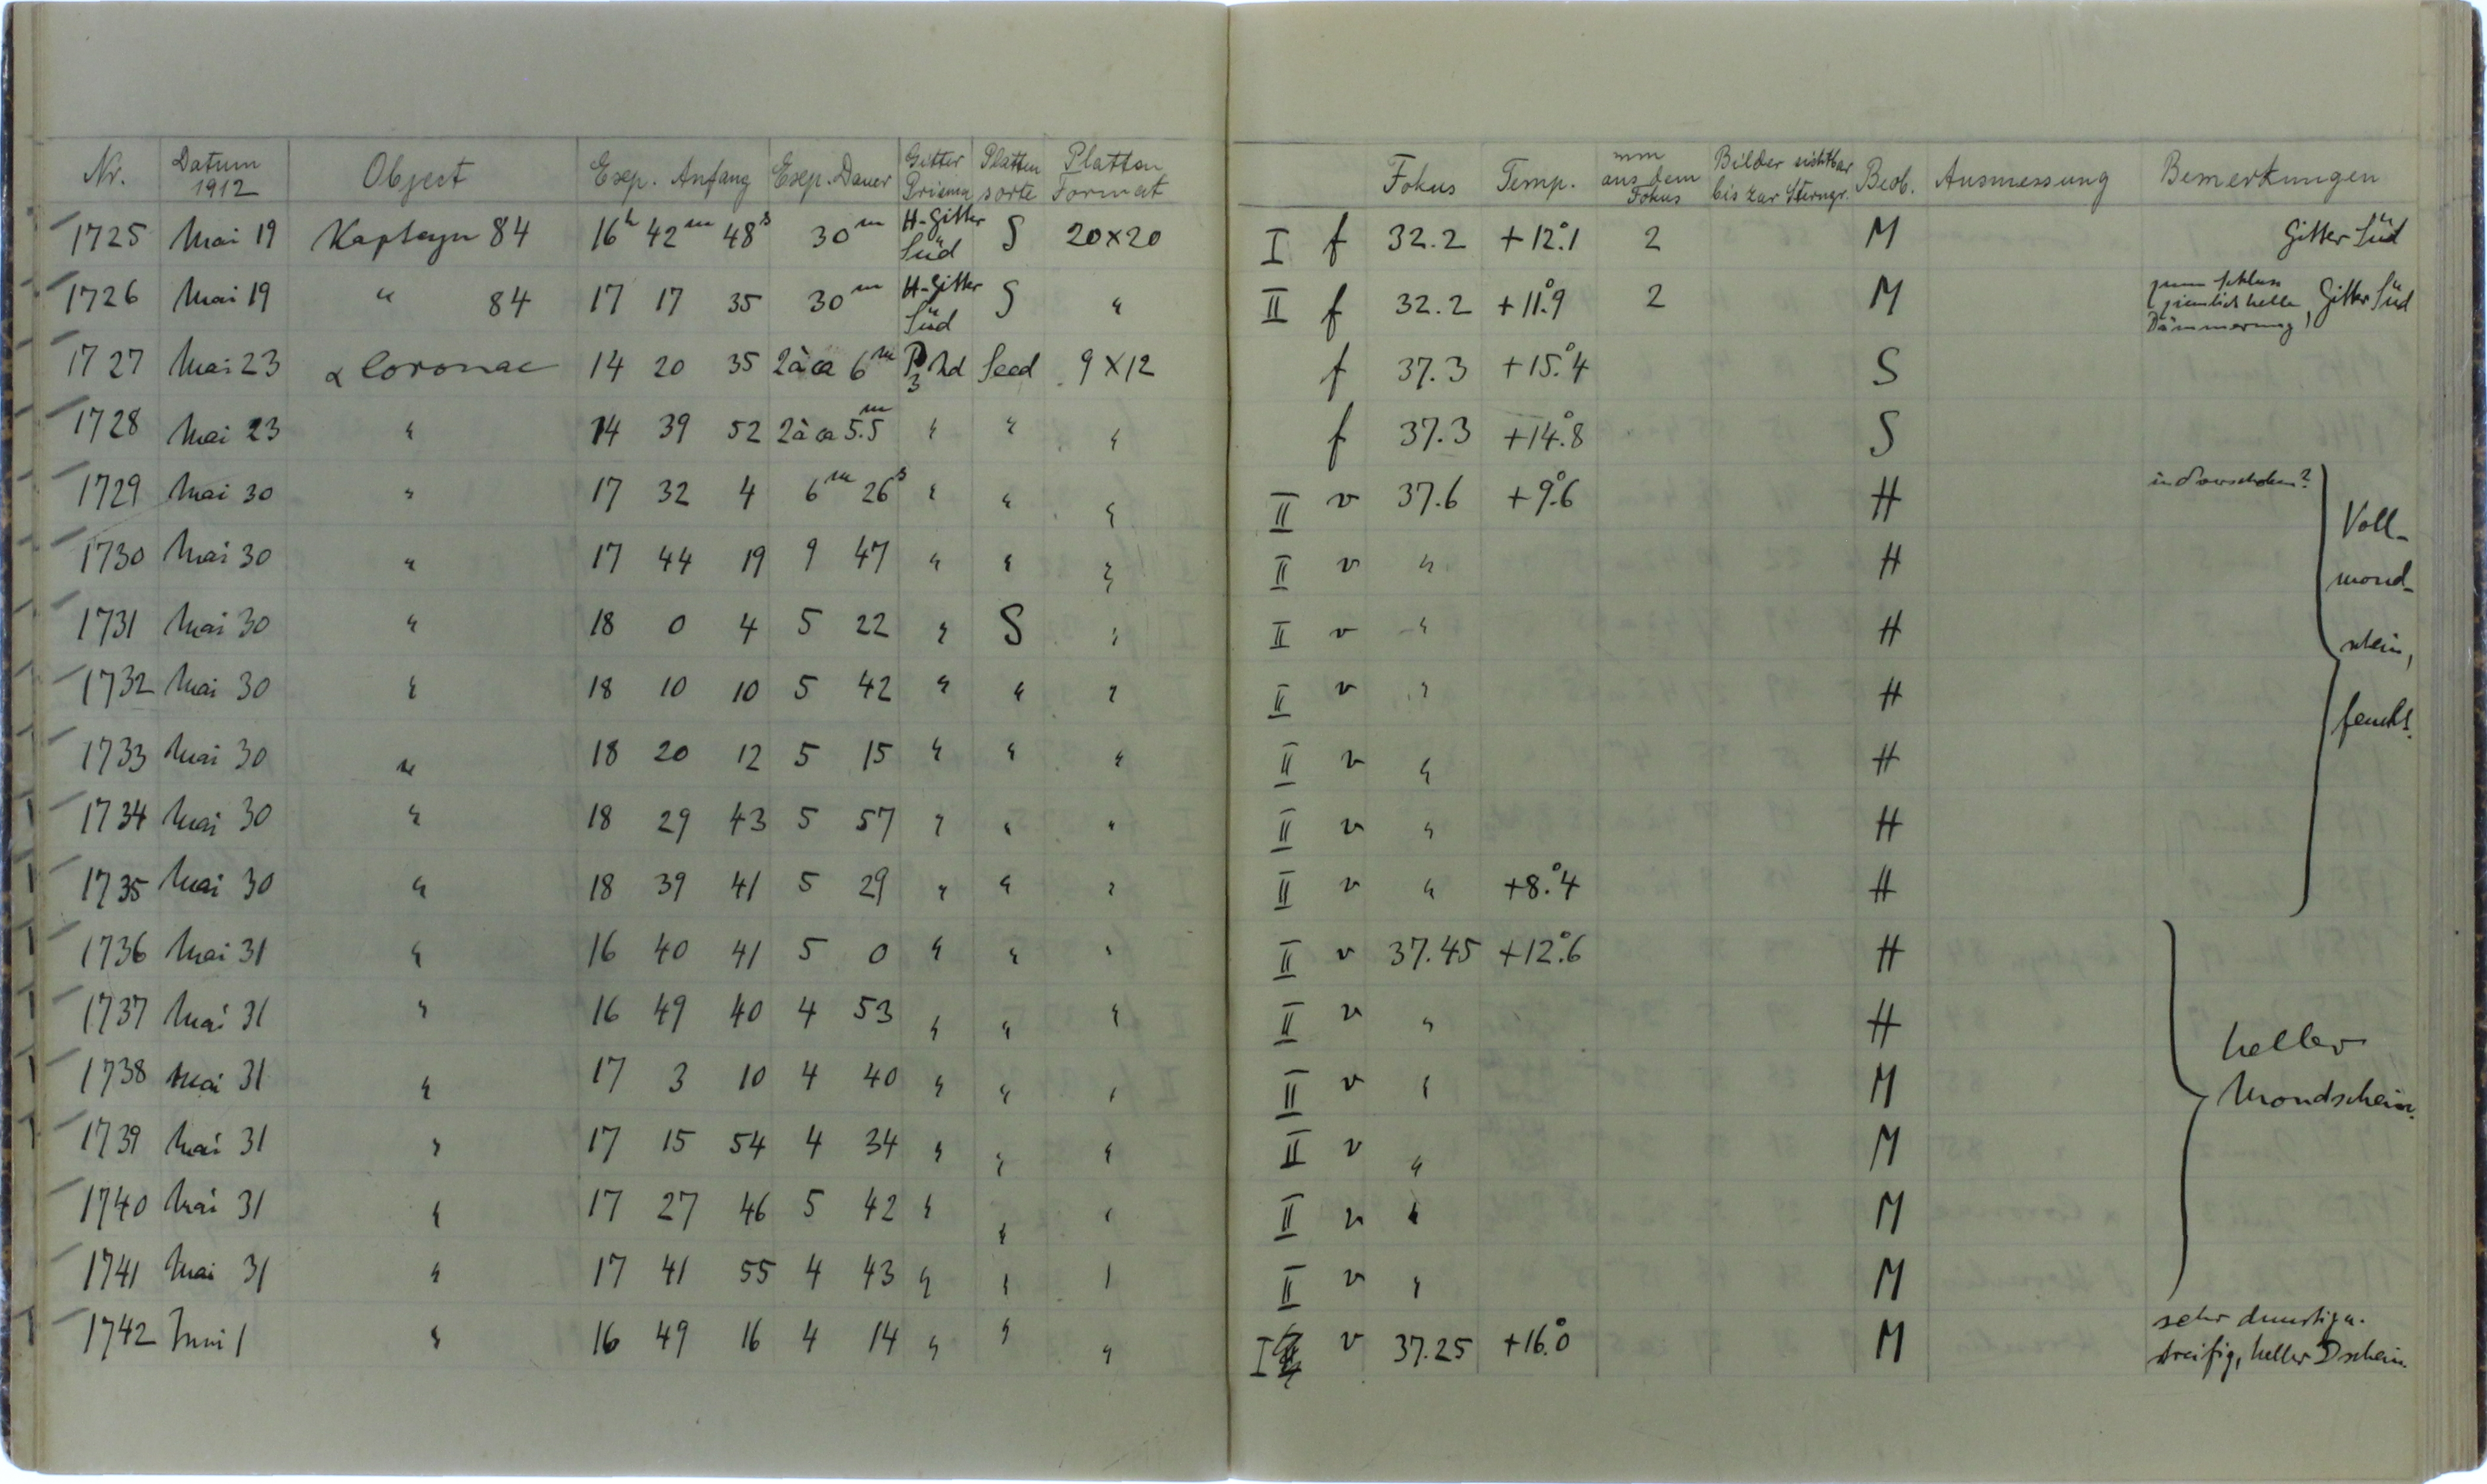 Nr. Datum 1912 Object Exp. Anfang Exp. Dauer Gitter Prisma Platten sorte Platten Format Fokus Temp. mm aus dem Fokus Bilder sichtbar bis zur Sterngr. Beob. Ausmessung Bemerkungen
1725 Mai 19 Kapteyn 84 16h 42m 48s 30m H-Gitter Süd S 20×20 I f 32.2 +12°.1 2 M Gitter Süd
1726 Mai 19 " 84 17 17 35 30m H-Gitter Süd S " II f 32.2 +11°.9 2 M zum Schluss ziemlich helle Dämmerung, Gitter Süd
1727 Mai 23 α Coronae 14 20 35 2à ca 6m P3 Seed 9×12 f 37.3 +15°.4 S
1728 Mai 23 " 14 39 52 2à ca 5.5m " " " f 37.3 +14°.8 S
1729 Mai 30 " 17 32 4 6m 26s " " " II v 37.6 +9°.6 H
1730 Mai 30 " 17 44 19 9 47 " " " II v " H
1731 Mai 30 " 18 0 4 5 22 " S " II v " H
1732 Mai 30 " 18 10 10 5 42 " " " II v " H
1733 Mai 30 " 18 20 12 5 15 " " " II v " H
1734 Mai 30 " 18 29 43 5 57 " " " II v " H
1735 Mai 30 " 18 39 41 5 29 " " " II v " +8°.4 H
Voll-
mond-
schein,
feucht.
1736 Mai 31 " 16 40 41 5 0 " " " II v 37.45 +12°.6 H
1737 Mai 31 " 16 49 40 4 53 " " " II v " H
1738 Mai 31 " 17 3 10 4 40 " " " II v " M
1739 Mai 31 " 17 15 54 4 34 " " " II v " M
1740 Mai 31 " 17 27 46 5 42 " " " II v " M
1741 Mai 31 " 17 41 55 4 43 " " " II v " M
heller
Mondschein.
1742 Juni 1 " 16 49 16 4 14 " " " I v 37.25 +16°.0 M sehr dunstig u.
streifig, heller ☽schein.